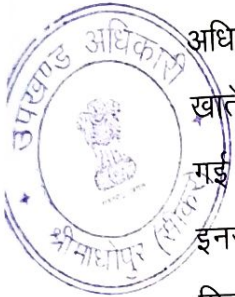 उपखण्ड अधिकारी
श्रीमाधोपुर (सीकर)
अधि
खाते
गई
इनर